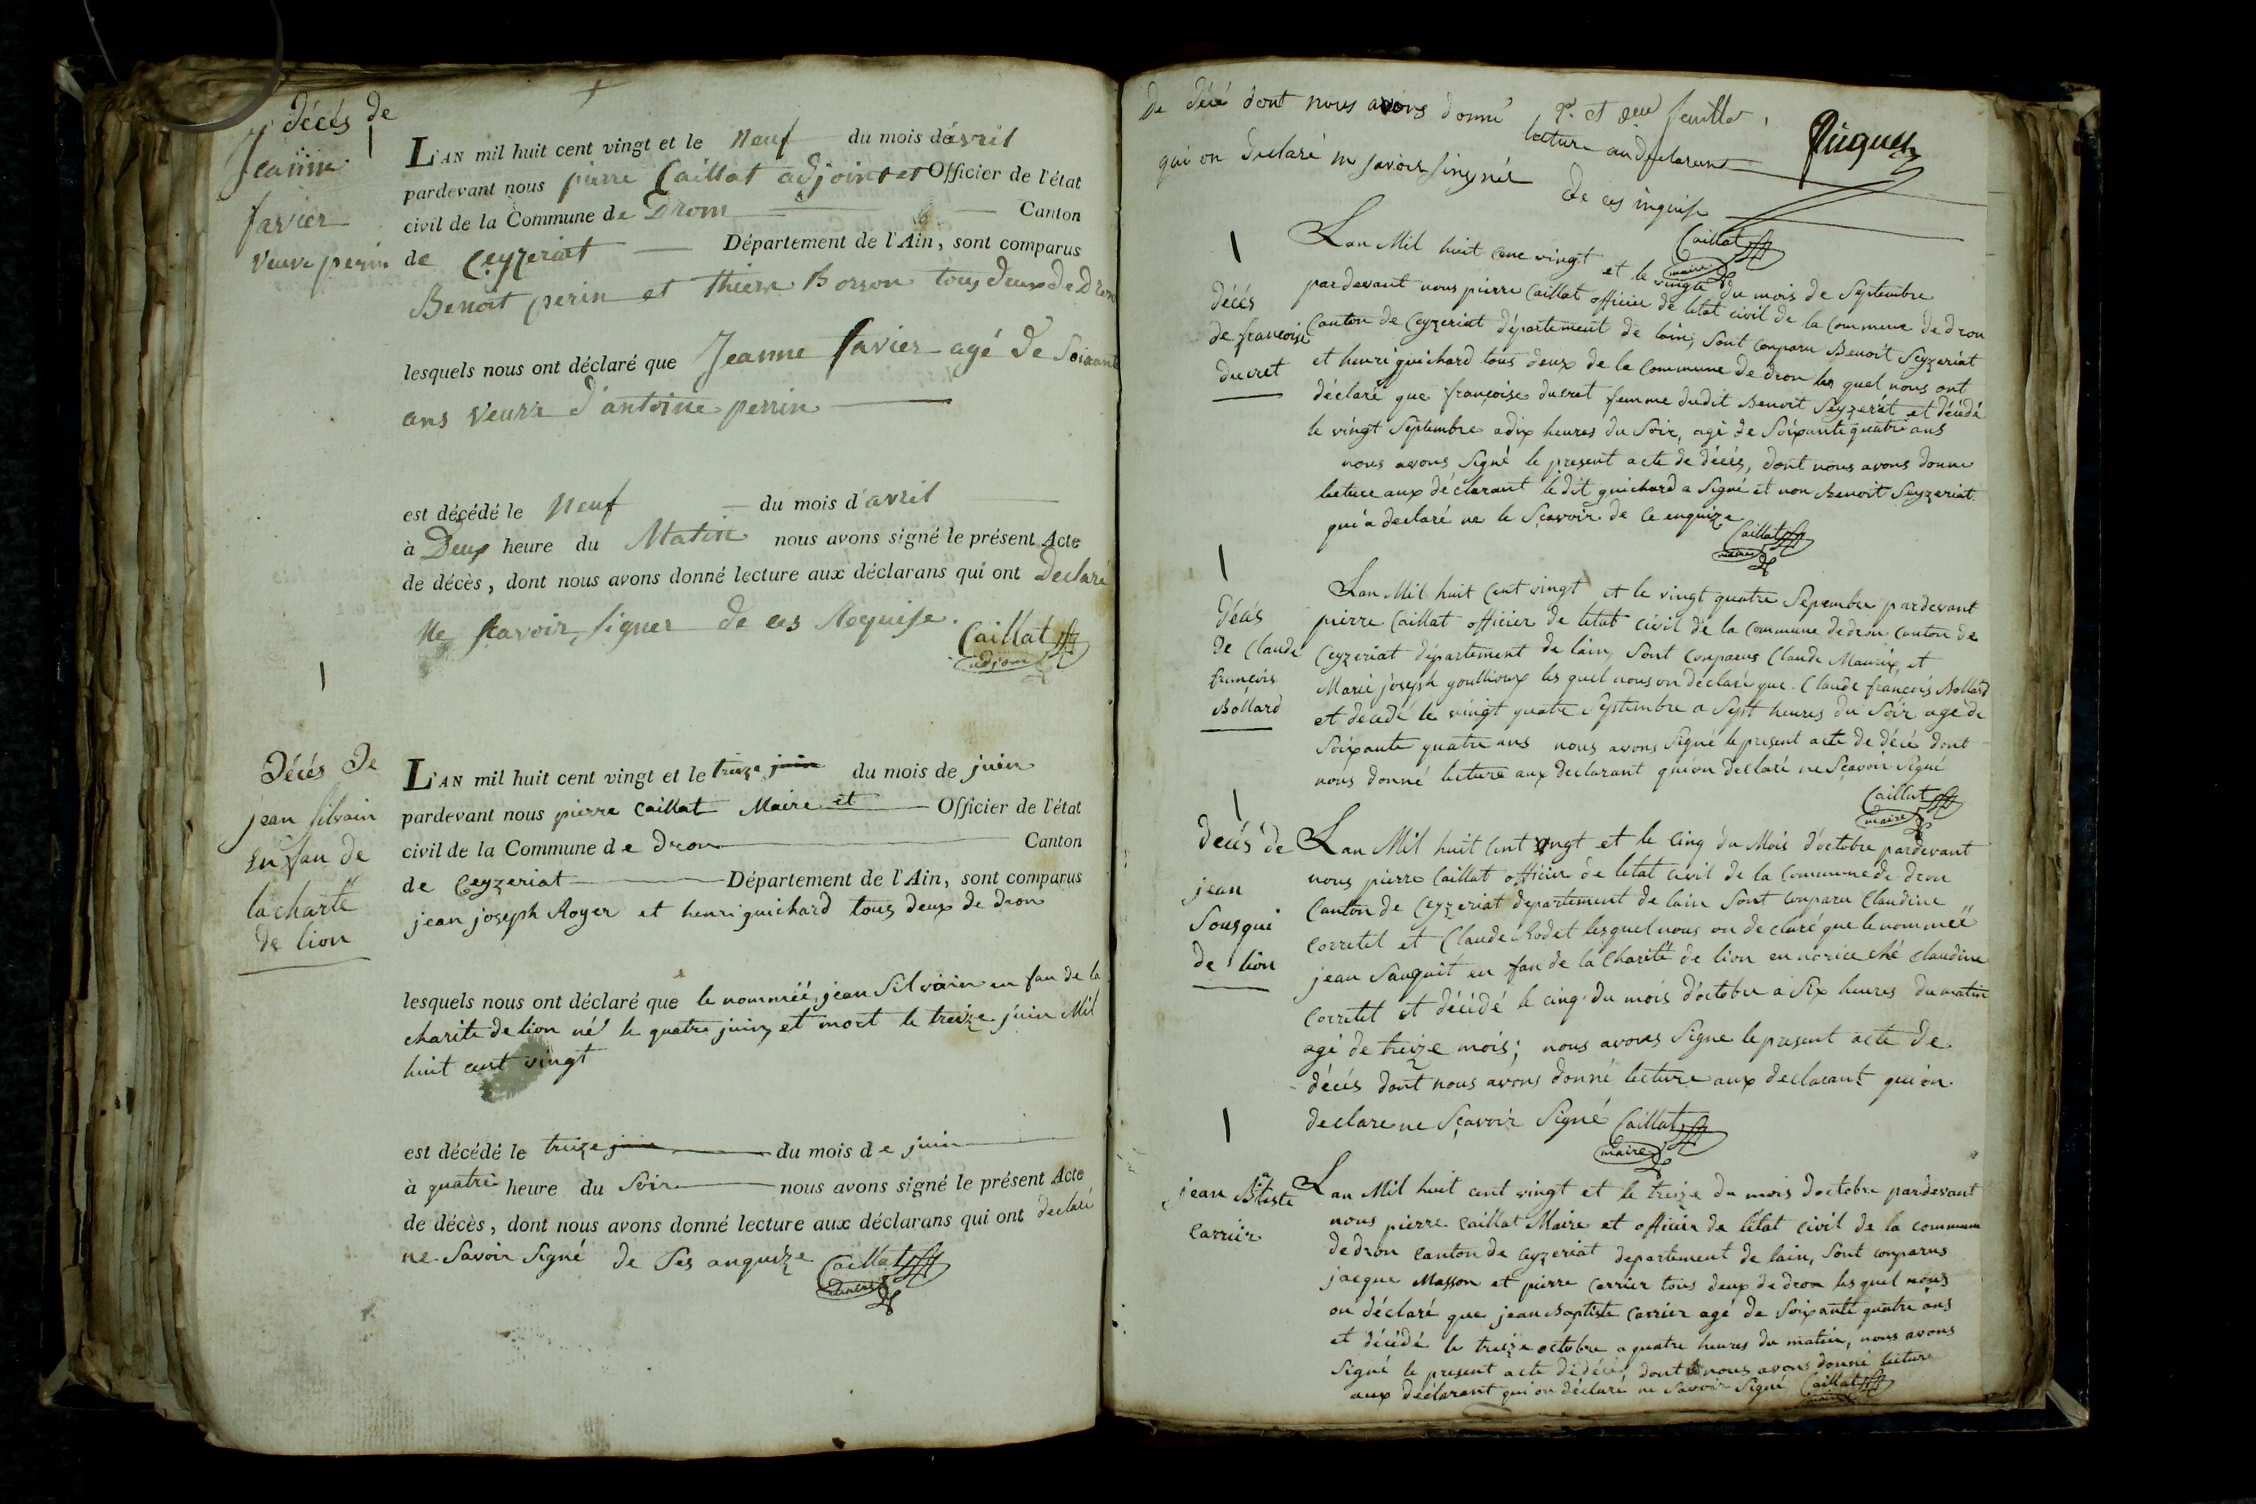 décés de
Jeanne
favier
veuve perin
L'AN mil huit cent vingt et le Neuf du mois d'avril
pardevant nous pierre Caillat adjoint et Officier de l'état
civil de la Commune de Drom Canton
de Ceyzeriat Département de l'Ain, sont comparus
Benoit perin et thiern Borson tous deux de Drom
lesquels nous ont déclaré que Jeanne favier agé de Soixante
ans veuve d'antoine perrin
est décédé le Neuf du mois d'avril
à Deux heure du Matin nous avons signé le présent Acte
de décès, dont nous avons donné lecture aux déclarans qui ont Declaré
Ne scavoir signer de ces Requise.
Caillat
adjoint
Décés De
jean silvain
En fan de
la charté
de lion
L'AN mil huit cent vingt et le treize juin du mois de juin
pardevant nous pierre caillat Maire et Officier de l'état
civil de la Commune de dron Canton
de Ceyzeriat Département de l'Ain, sont comparus
jean joseph Royer et henri guichard tous deux de dron
lesquels nous ont déclaré que le nomméé jean Silvain en fan de la
charite de lion né le quatre juin, et mort le treize juin Mil
huit cent vingt
est décédé le treize juin du mois de juin
à quatre heure du Soir nous avons signé le présent Acte
de décès, dont nous avons donné lecture aux déclarans qui ont declaré
ne Savoir Signé de Ses anquize Caillat
De décé dont nous avons donné lecture au declarent
2e et feuillet
qui on Declaré ne savoir singné de ces inquise
décés
de francoise
ducret
Lan Mil huit cent vingt et le vingte du mois de Septembre
Caillat
maire
pardevant nous pierre Caillat officier de letat civil de la Commune de dron
Canton de Ceyzeriat département de lain, Sont comparu Benoit Seyzeriat
et henri guichard tous deux de la Commune de dron les quel nous ont
déclaré que françoise ducret femme dudit Benoit Seyzeriat et décédé
le vingt Septembre a dix heures du Soir, agé de Soixante quatre ans
nous avons Signé le present acte de décés, dont nous avons donné
lecture aux déclarant ledit guichard a Signé et non Benoit Seyzeriat
qui a declaré ne le Sçavoir de ce enquize
Caillat
maire
Décés
De Claude
françois
Bollard
Lan Mil huit Cent vingt et le vingt quatre Sepembre pardevant
pierre Caillat officier de letat civil de la Commune de dron canton de
Ceyzeriat département de lain, Sont comparus Claude Maurix et
Marie joseph goullioux les quel nous on déclaré que Claude françois Bollard
et décedé le vingt quatre Septembre a Sept heures du Soir agé de
Soixante quatre ans nous avons Signé le present acte de décé dont
nous donné lecture aux declarant qui on declaré ne Sçavoir Signé
Caillat
maire
decés de
jean
Sousqui
de lion
Lan Mil huit Cent vingt et le Cinq du Mois d'octobre pardevant
nous pierre Caillat officier de letat civil de la Commune de dron
Canton de Ceyzeriat departement de lain Sont comparu Claudine
Corretet et Claude Rodet lesquel nous on declaré que le nommée
jean Sauquit en fan de la Charité de lion en norice ché Claudine
Corretet et décédé le cinq du mois d'octobre a Six heures du matin
agé de treize mois; nous avons Signe le present acte de
décés dont nous avons donné lecture aux declarant qui on
declare ne Sçavoir Signé Caillat
maire
jean Btiste
Carrier
Lan Mil huit cent vingt et le treize du mois doctobre pardevant
nous pierre Caillat Maire et officier de l'état civil de la commune
de dron canton de Ceyzeriat departement de lain, Sont comparus
jacque Masson et pierre Carrier tous deux de dron lesquel nous
on déclaré que jean Baptiste Carrier agé de Soixante quatre ans
et décédé le treize octobre a quatre heures du matin, nous avons
Signé le present acte de décé, dont nous avons donné lecture
aux declarant qui on declaré ne Savoir Signé Caillat
maire